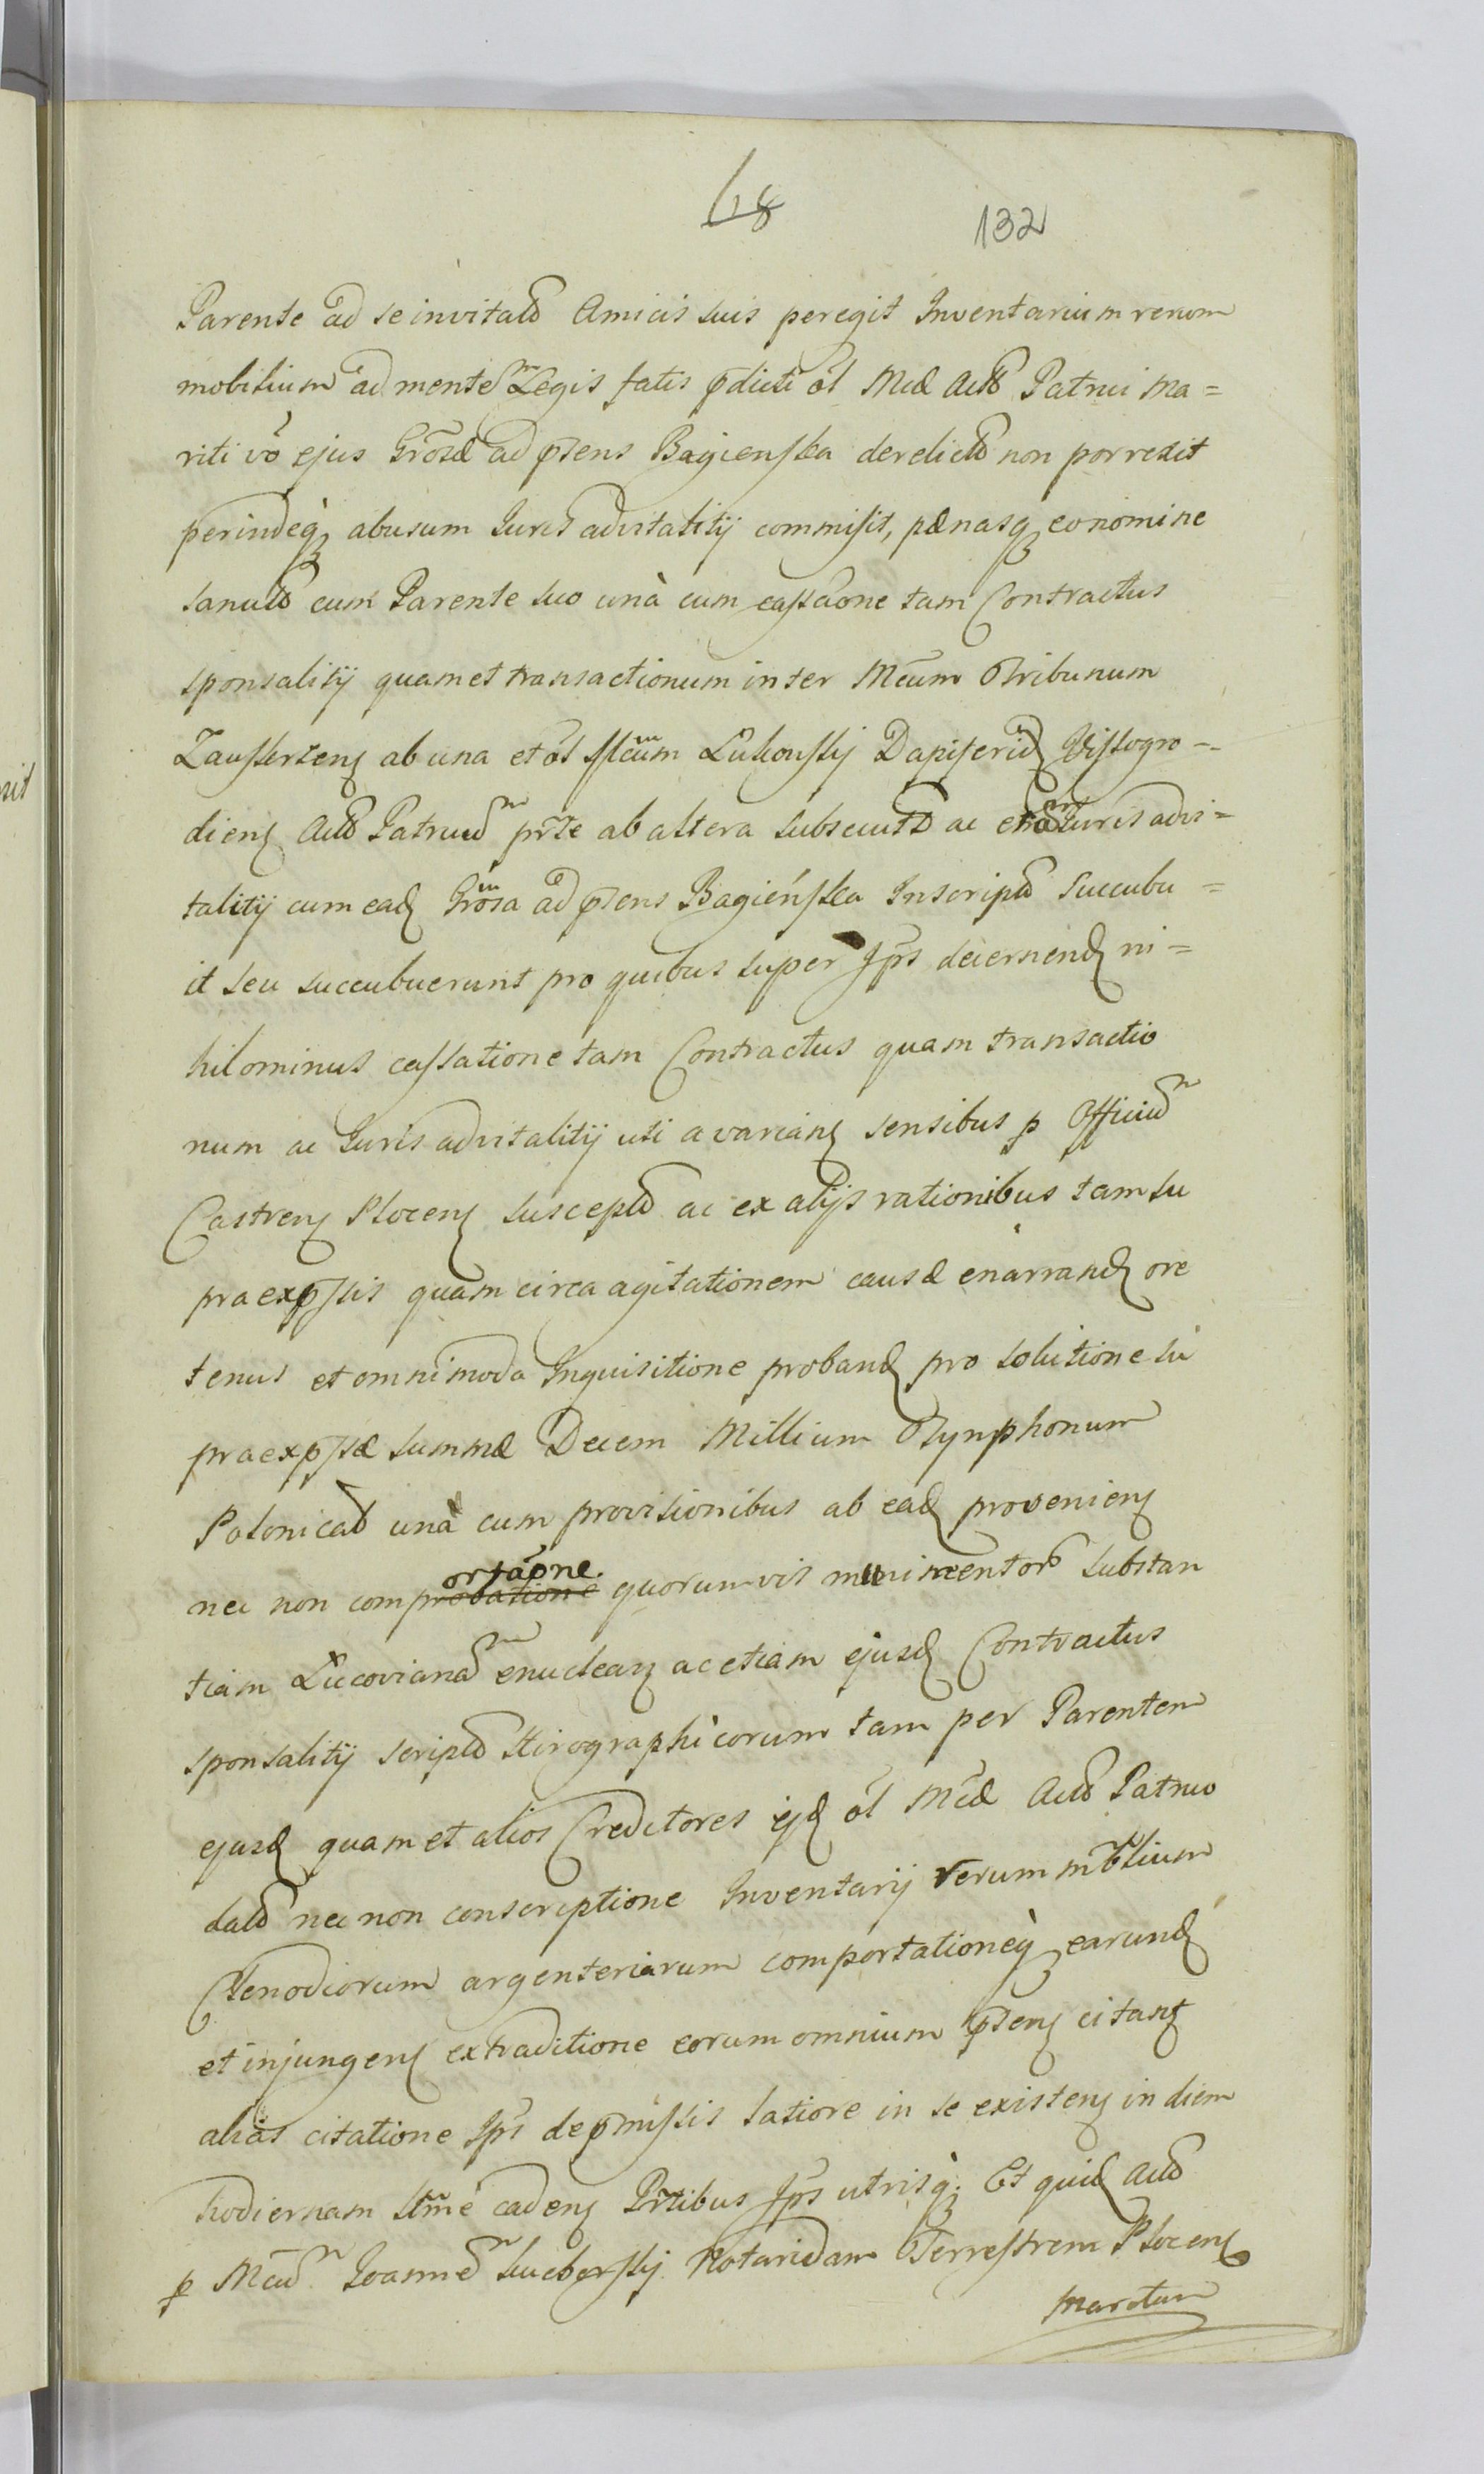 132
Parente ad se invitatō Amicis suis peregit Inventarium rerum
mobilium ad mentēm Legis fatis p̄dicti ōl Mcd Actō Patrui Ma=
riti vō ejus Grōsæ ad p̄sens Bagienska derelictō non porrexit
perindeq; abusum Juris advitalitij commisit, pænasq; eo nomine
sancitō cum Parente suo unà cum cassāone tam Contractus
sponsalitij quam et transactionum inter Mcum Tribunum
ab una et ōl Mcūm Lukouskij Dapiferiđ Vissogro=
dienȝ Actō Patruūm pr̄te ab altera subsecutō ac Juris advi=
talitij cum eađ Grōsa ad p̄sens Bagieńska Inscriptō succubu=
it seu succubuerunt pro quibus super Jp̄s decernenđ ni=
hilominus cassatione tam Contractus quam transactio
num ac Juris advitalitij uti a varianȝ sensibus p̱ Officiūm
Castrenȝ Plocenȝ susceptō ac ex alijs rationibus tam su
praexp̄ssis quam circa agitationem causæ enarranđ ore
tenus et omnimoda Inquisitione probanđ pro solutione su
praexp̄ssæ summæ Decem Millium Tynphonum
Polonicaō unà cum provisionibus ab eađ provenienȝ
nec non comprobatione ortāone. quorumvis munimentorō substan
tiam Lucovianām enucleanȝ ac etiam ejusđ Contractus
sponsalitij scriptō Chirographicorum tam per Parentem
ejusđ quam et alios Creditores ejđ ōl Mcđæ Actō Patruo
datō nec non conscriptione Inventarij rerum mb̄lium
Clenodiorum argenteriarum comportationeq; earunđ
et injungenȝ extraditione eorum omnium p̄senȝ citanȝ
alias citatione Jp̄s de p̄missis latiore in se existenȝ in diem
hodiernam cadenȝ Pr̄tibus Jp̄s utrisq; Et quiđ Actō
p̱ Mcūm Joannēm Notariđam Terrestrem Plocenȝ